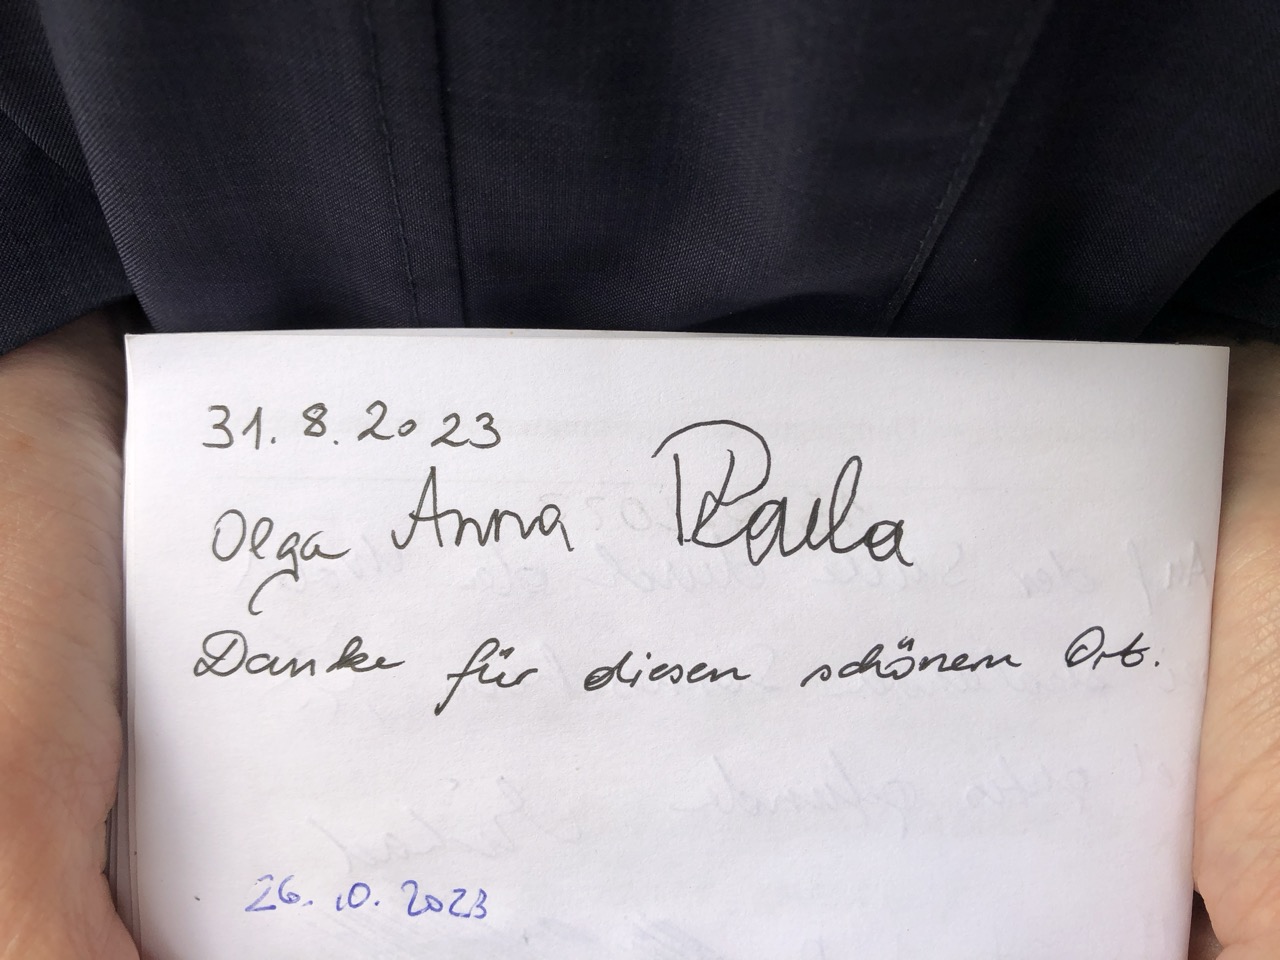 31.8.2023
Olga Anna Paula
Danke für diesen schönen Ort.
26.10.2023